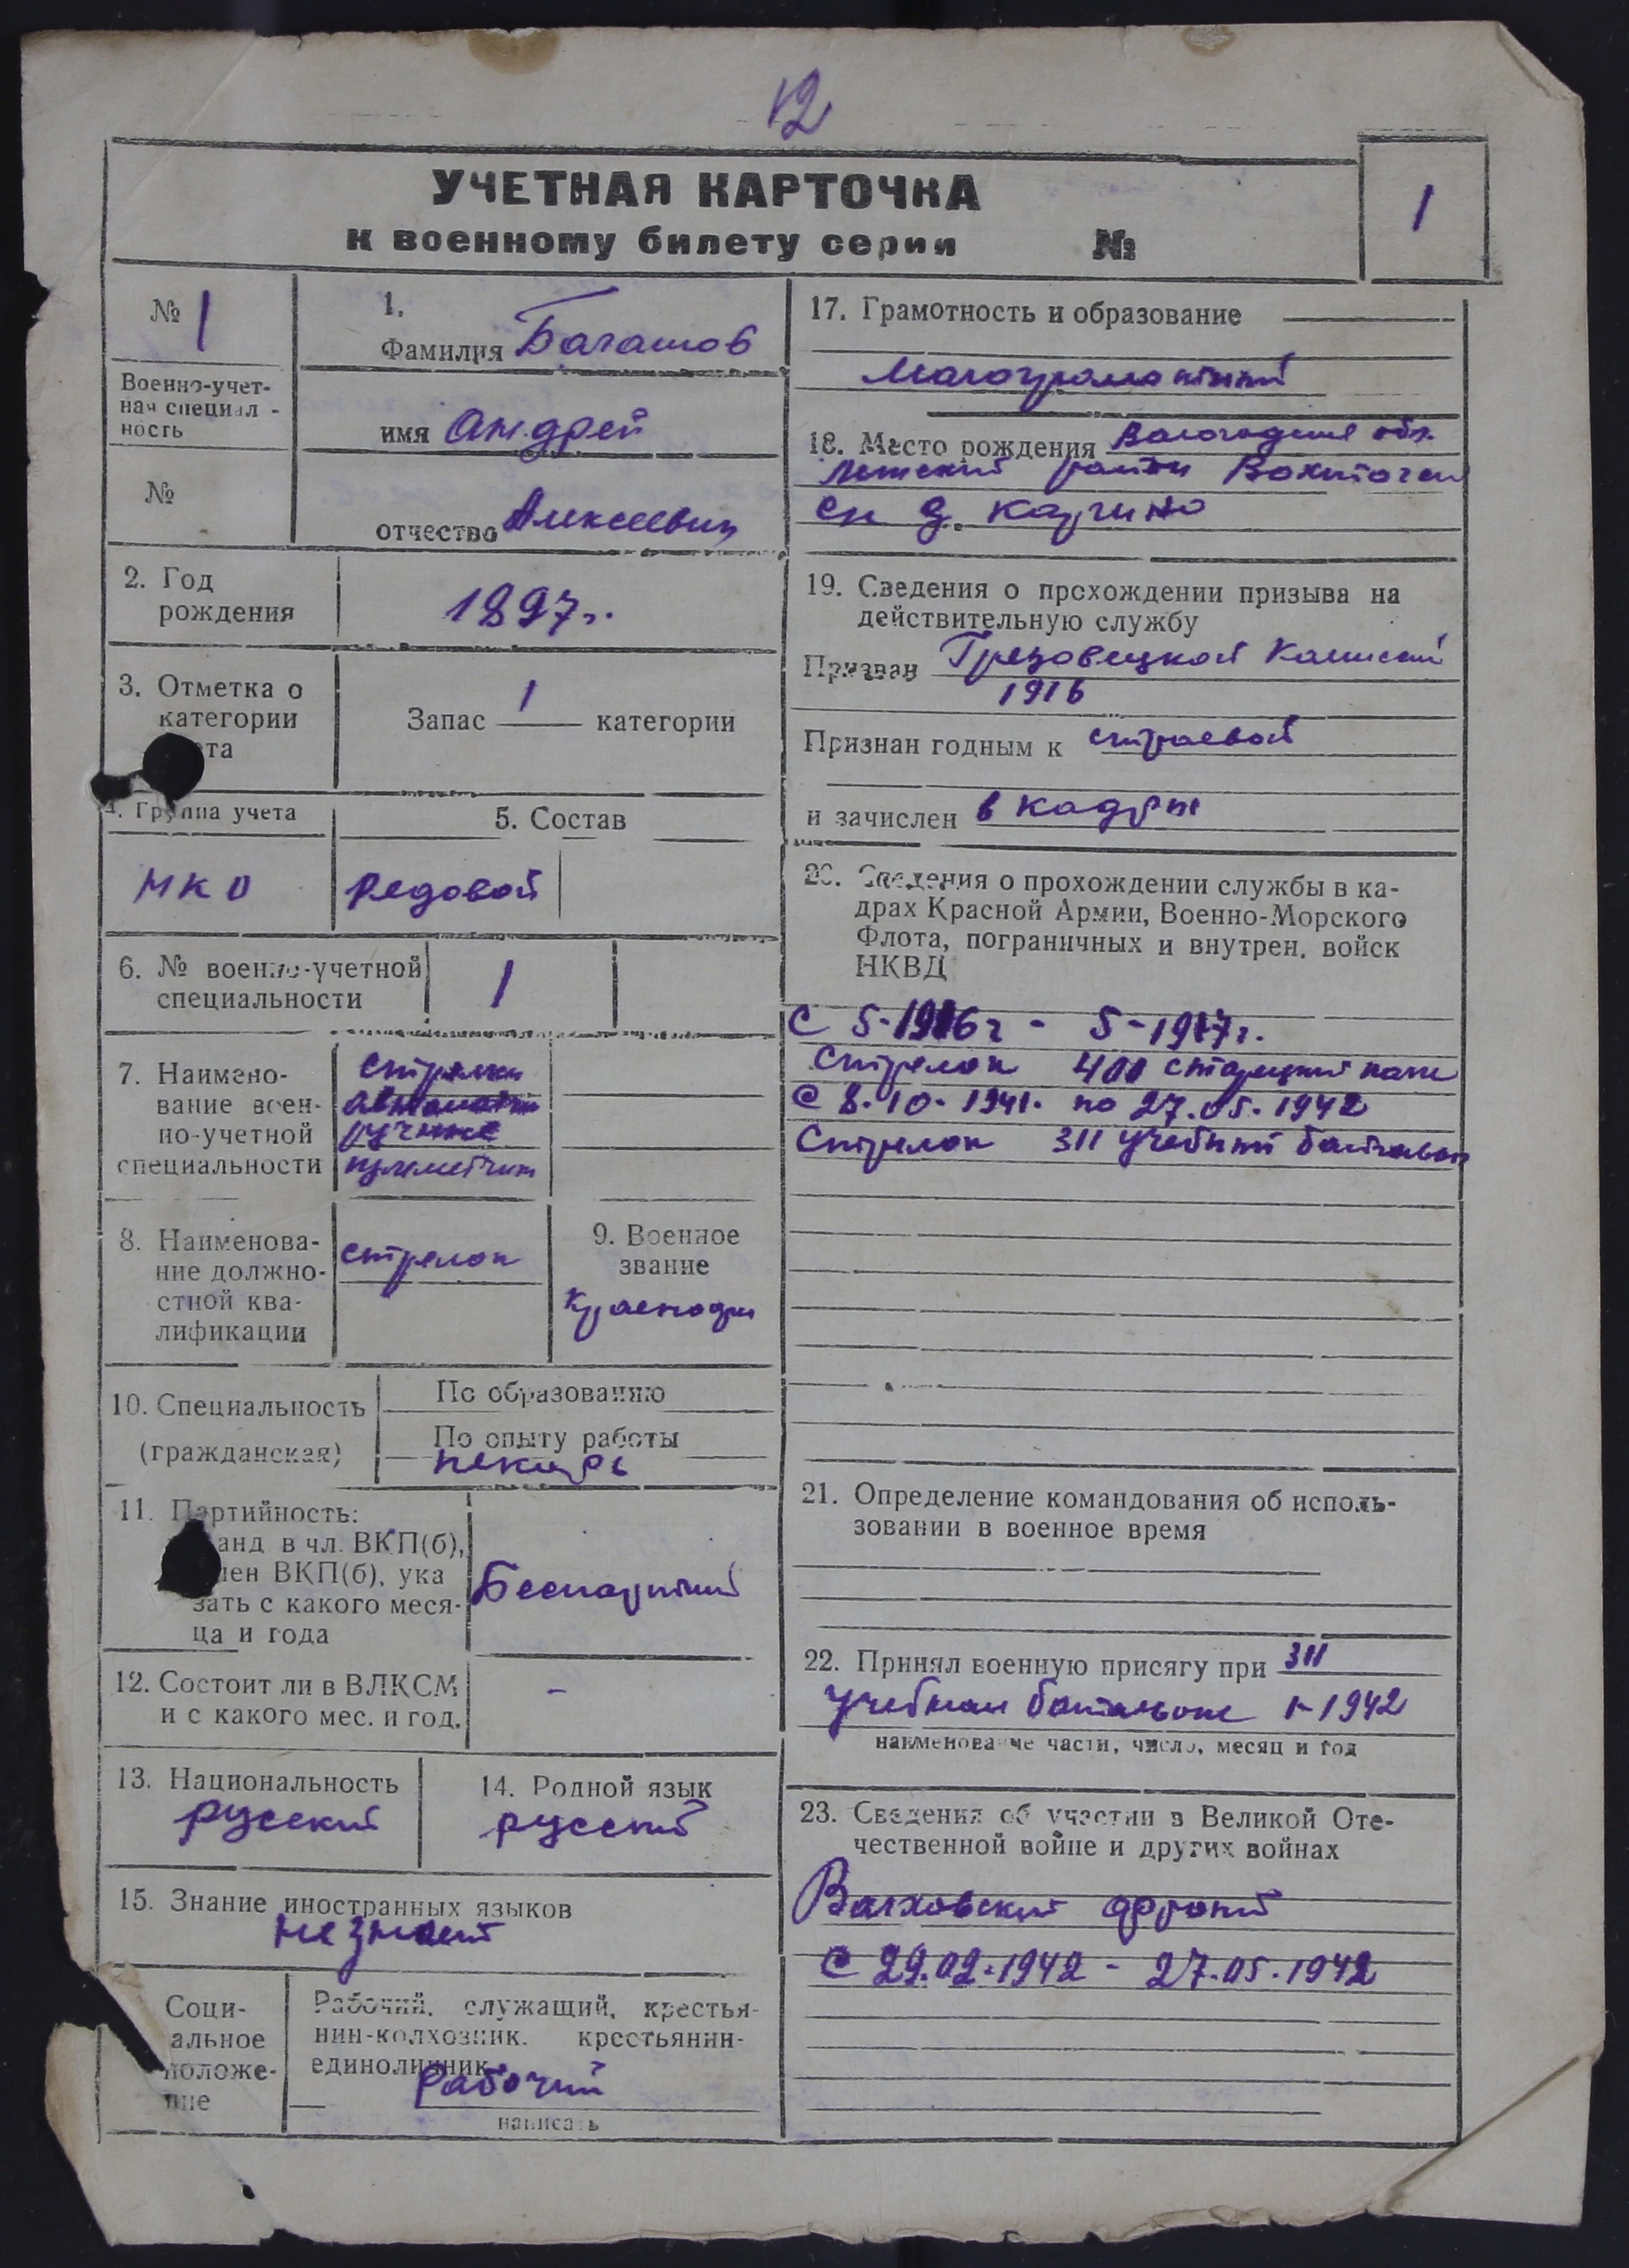 12
УЧЕТНАЯ КАРТОЧКА
к военному билету серии №
1
№ 1
Военно-учет-
ная специал -
ность
№
1.
Фамилия Багашов
имя Андрей
отчество Алексеевич
2. Год
рождения
1897г.
3. Отметка о
категории
ета
Запас 1 категории
4. Группа учета
5. Состав
МКО
Редовой
6. № военно-учетной
специальности
1
7. Наимено-
вание воен-
но-учетной
специальности
стрелки
автоматчи
ручные
пулиметчит
8. Наименова-
ние должно-
стной ква-
лификации
стрелок
9. Военное
звание
Красноар
10. Специальность
(гражданская)
По образованию
По опыту работы
пекарь
11. Партийность:
канд в чл. ВКП(б),
член ВКП(б), ука
зать с какого меся-
ца и года
Беспартий
12. Состоит ли в ВЛКСМ
и с какого мес. и год.
-
13. Национальность
русский
14. Родной язык
русский
15. Знание иностранных языков
не знает
Соци-
альное
положе-
ние
Рабочий, служащий, крестья-
нин-колхозник. крестьянин-
единоличник
Рабочий
написать
17. Грамотность и образование
Малограмотный
18. Место рождения Вологодская обл.
район
с/с д. Каргино
19. Сведения о прохождении призыва на
действительную службу
Призван Грезовецкой Камисей
1916
Признан годным к строевой
и зачислен в кадры
20. Сведения о прохождении службы в ка-
драх Красной Армии, Военно-Морского
Флота, пограничных и внутрен. войск
НКВД
С 5-1916г - 5-1917г.
Стрелок
С 8.10.1941. по 27.05.1942
Стрелок 311 учебный батальон
21. Определение командования об исполь-
зовании в военное время
22. Принял военную присягу при 311
учебном батальоне 1-1942
наименование части, число, месяц и год
23. Сведения об участии в Великой Оте-
чественной войне и других войнах
Валховский фронт
С 29.02.1942 - 27.05.1942